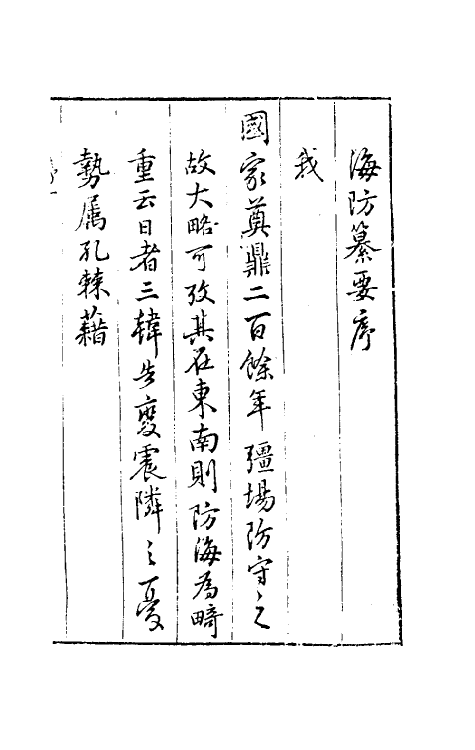 海防纂要序
我
國家奠鼎二百餘年疆場防守之
故大略可攷其在東南則防海為畸
重云日者三韓告變震隣之憂
勢属孔棘藉